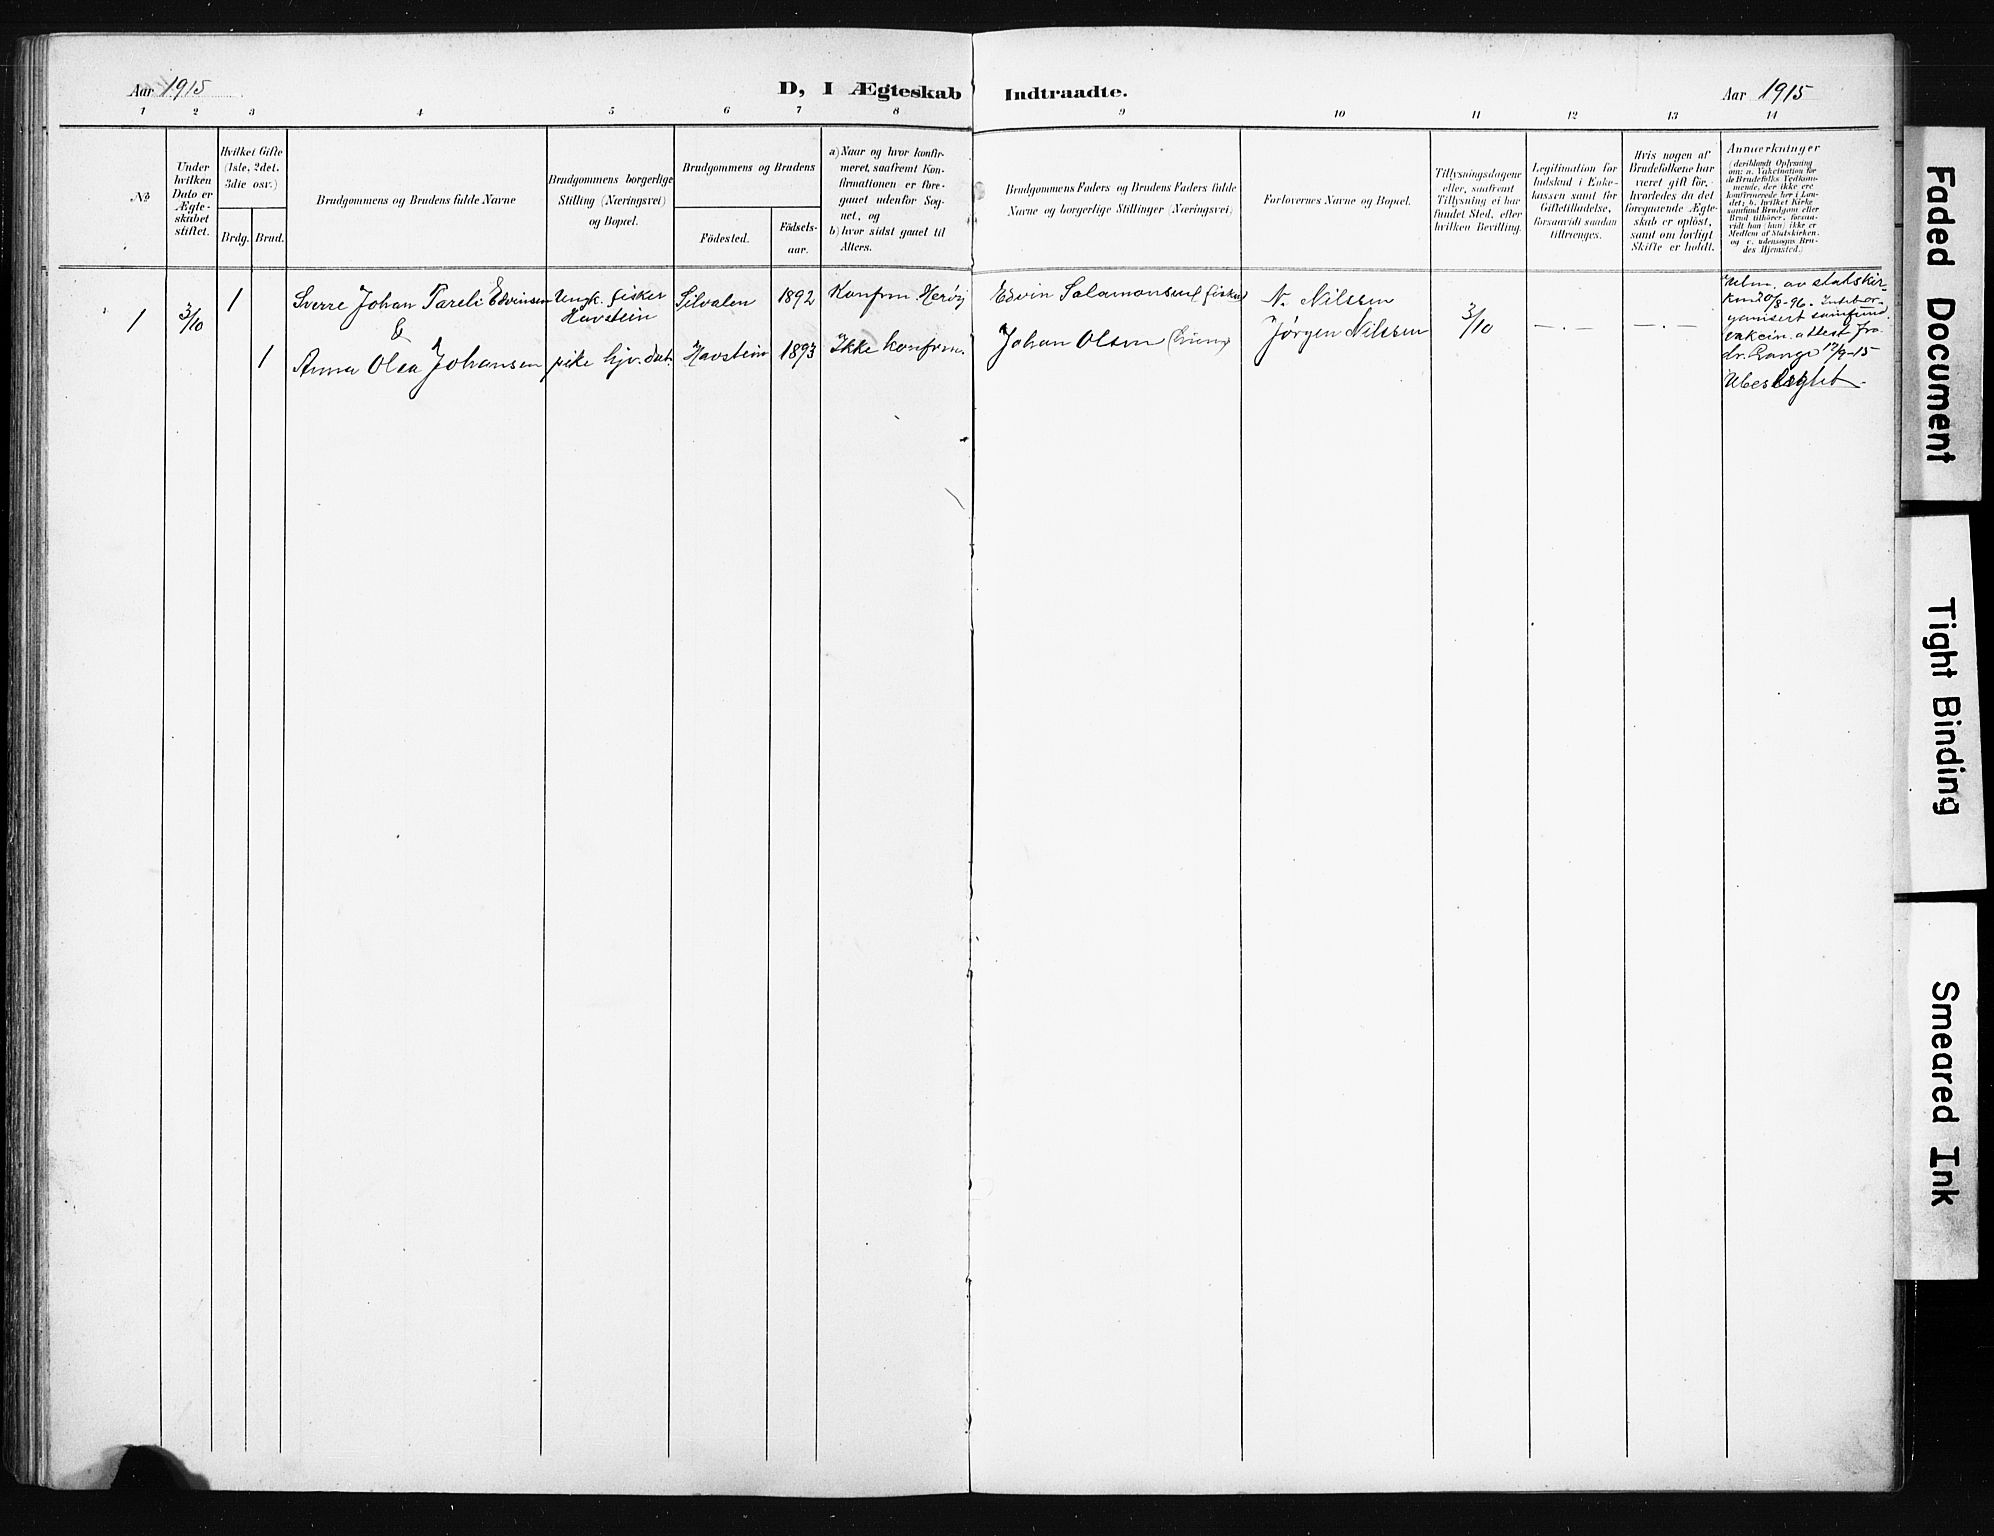 Aar 1915
D, I Ægteskab Indtraadte.
Aar 1915
1 2 3 4 5 6 7 8 9 10 11 12 13 14
No
Under
hvilken
Dato er
Ægte-
skabet
stiftet.
Hvilket Gifte
(1ste, 2det.
3die osv.)
Brdg. Brud.
Brudgommens og Brudens fulde Navne
Brudgommens borgerlige
Stilling (Næringsvei)
og Bopæl.
Brudgommens og Brudens
Födested.
Födsels-
aar.
a) Naar og hvor konfir-
meret, saafremt Kon-
firmationen er fore-
gaaet udenför Sog-
net, og
b) hvor sidst gaaet til
Alters.
Brudgommens Faders og Brudens Faders fulde
Navne og borgerlige Stillinger (Næringsvei)
Forlovernes Navne og Bopæl.
Tillysningsdagene
eller, saafremt
Tillysning ei har
fundet Sted, efter
hvilken Bevilling.
Legitimation for
Indskud i Enke-
kassen samt for
Giftetilladelse,
forsaavidt saadan
tiltrænges.
Hvis nogen af
Brudefolkene har
været gift før,
hvorledes da det
foregaaende Ægte-
skab er opløst,
samt om lovligt
Skifte er holdt.
Anmerkninger
(deriblandt Oplysning
om: a. Vakcination for
de Brudefolks Vedkom-
mende, der ikke ere
konfirmerede her i Lan-
det; b. hvilket Kirke-
samfund Brudgom eller
Brud tilhører, forsaa-
vidt han (hun) ikke er
Medlem af Statskirken,
og c. udensogns Bru-
des Hjemsted.)
1 3/10 1 Sverre Johan Pareli Edvinsen Ungk. fisker Silvalen 1892 Konfrm Herøy Edvin Salamonsen (fisker) N. Nilssen 3/10
Havstein
&
1 Anna Olea Johansen pike hjv. dat. Havstein 1893 Ikke konfrm. Johan Olsen Jørgen Nilssen
Utm. av statskir-
ken 8-96.
samfund.
attest fra
dr. 17/9-15
Ubeslegtet
Faded Document
Tight Binding
Smeared Ink